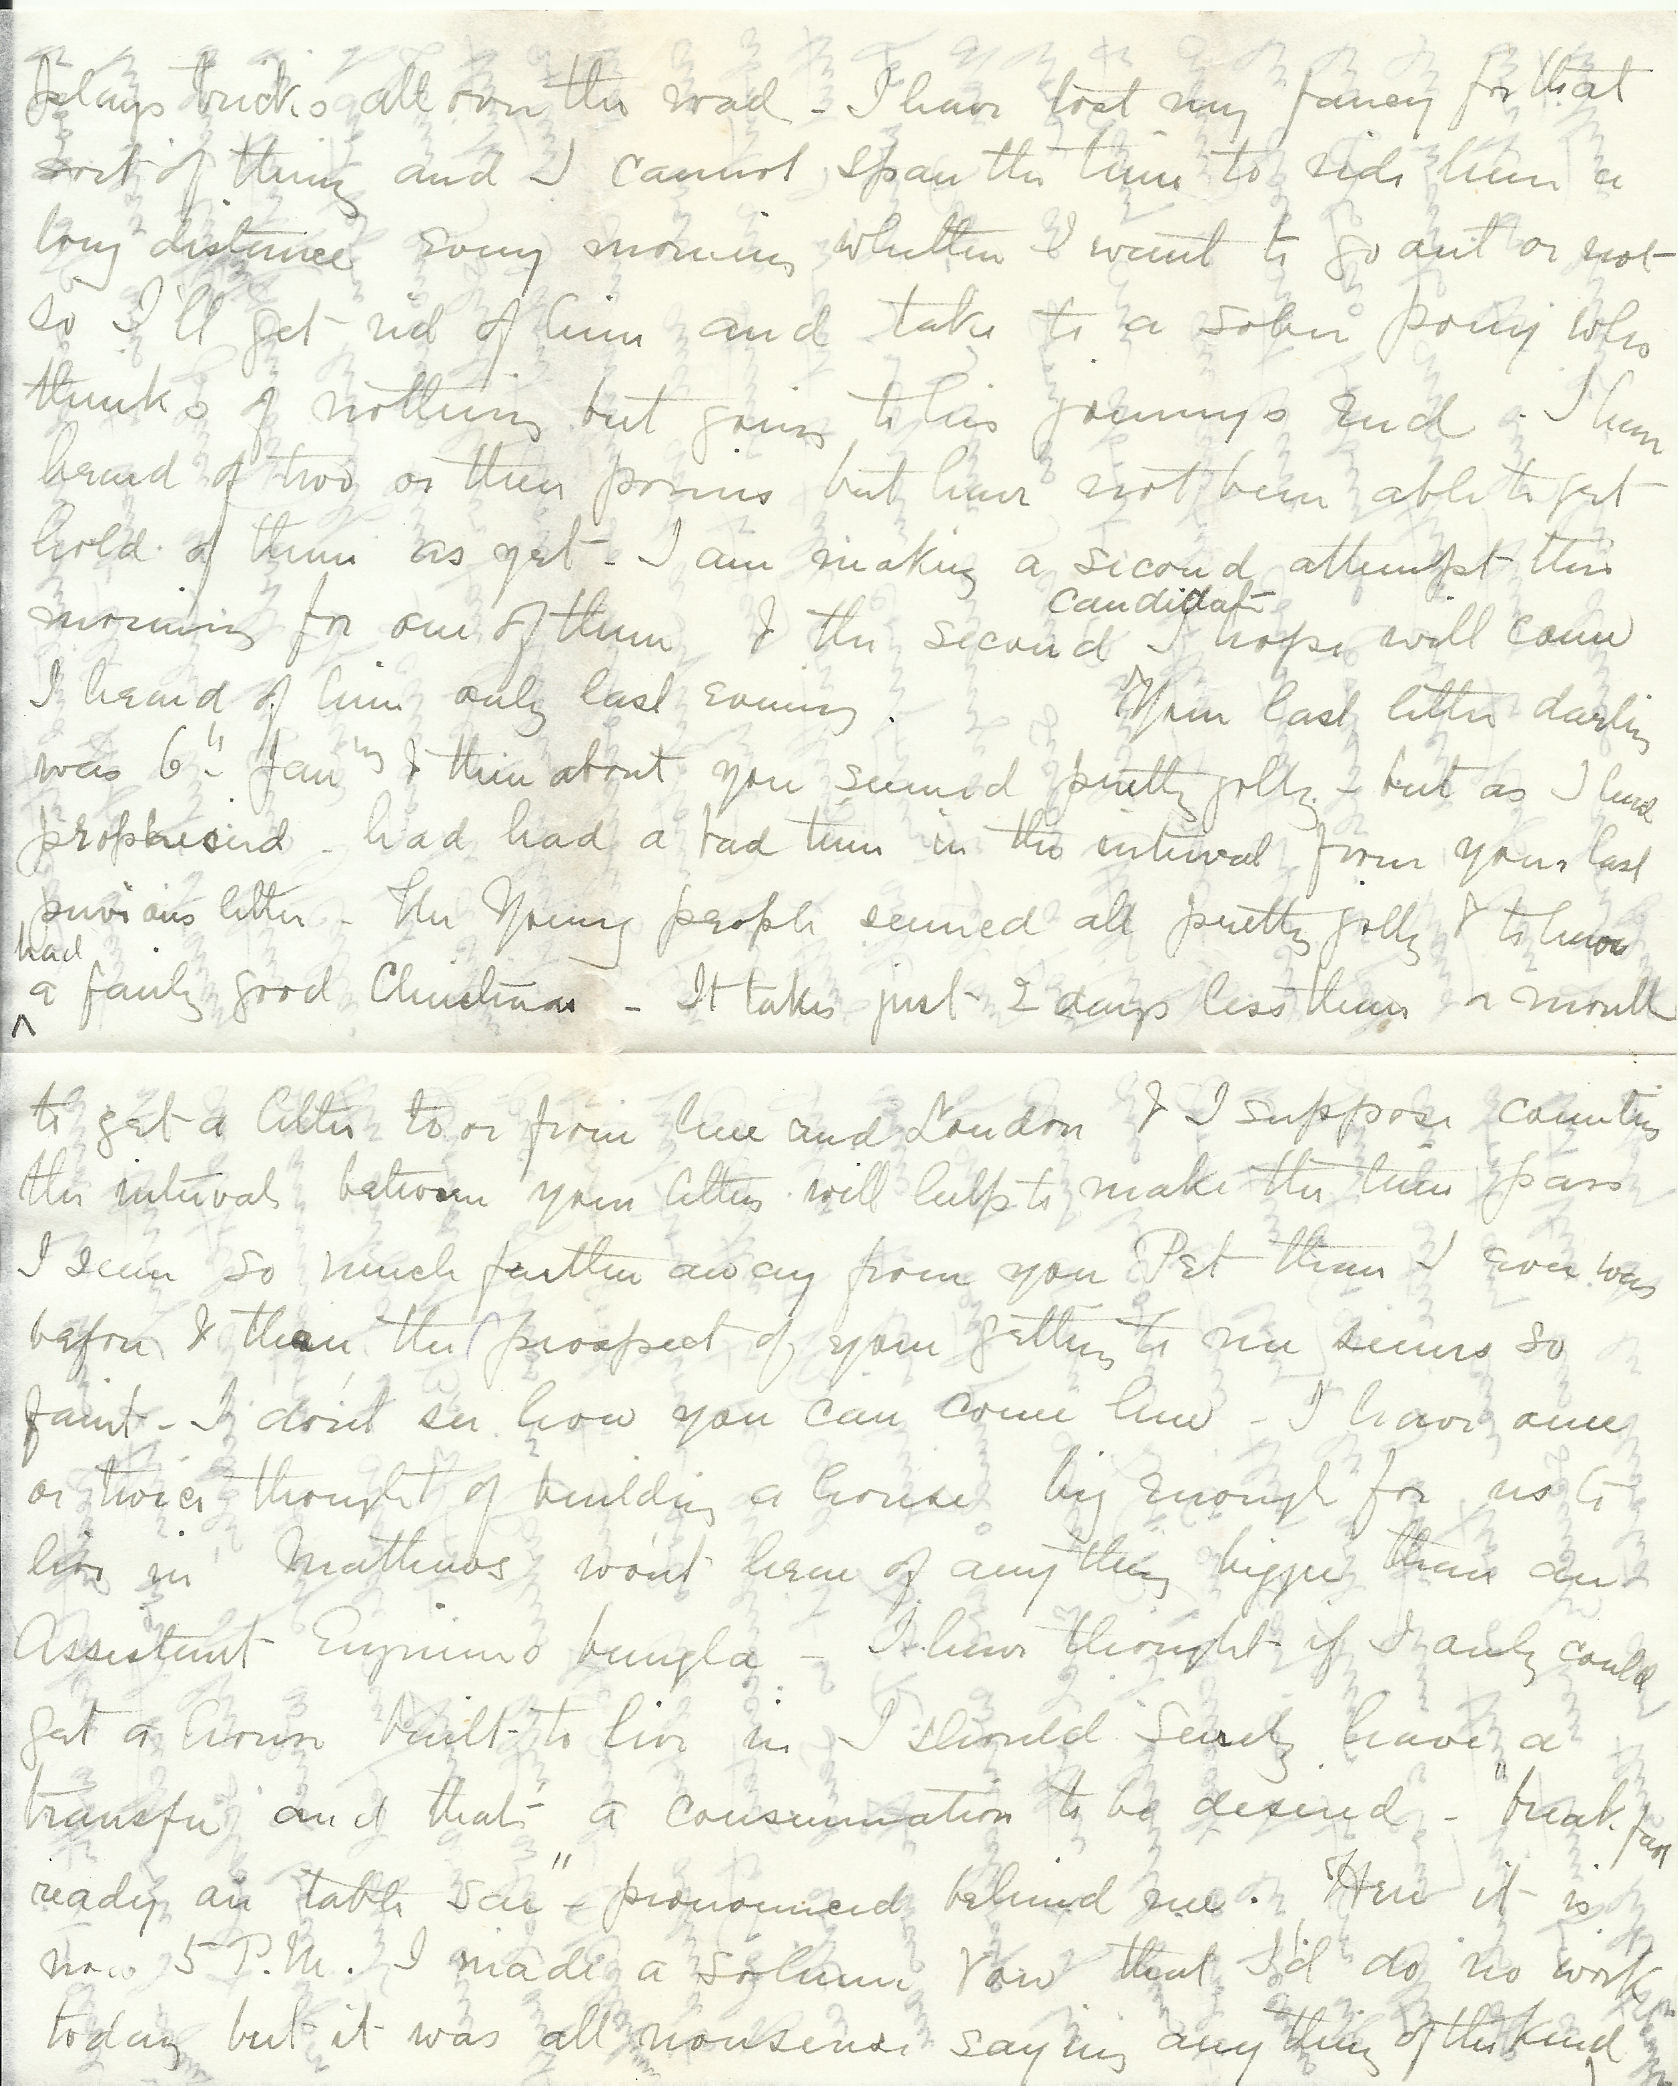 plays tricks all over the road - I have lost my fancy for that
sort of thing and I cannot spare the time to ride him a
long distance every morning whether I want to go out or not
so I'll get rid of him and take to a sober pony who
thinks of nothing but going to his journeys end - I have
heard of two or three ponies but have not been able to get
hold of them as yet - I am making a second attempt this
morning for one of them & the second candidate I hope will come
I heard of him only last evening. Your last letter darling
was 6th Jany & then about you seemed pretty jolly - but as I had
prophesied - had had a bad time in the interval from your last
previous letter - The Young people seemed all pretty jolly & to have
had
a fairly good Christmas - It takes just 2 days less than a month
to get a letter to or from here and London & I suppose counting
the interval between your letters will help to make the time pass
I seem so much further away from you Pet than I ever was
before & then the prospect of your getting to me seems so
faint - I don't see how you can come here - I have once
or twice thought of building a house big enough for us to
live in Matthews won't hear of anything bigger than an
Assistant Engineers bungla - I have thought if I only could
get a house built to live in I should surely have a
transfer and that's a consummation to be desired - "breakfast
ready on table Sar" - pronounced behind me. Here it is
now 5 P.M. I made a solemn vow that I'd do no work
today but it was all nonsense saying anything of the kind